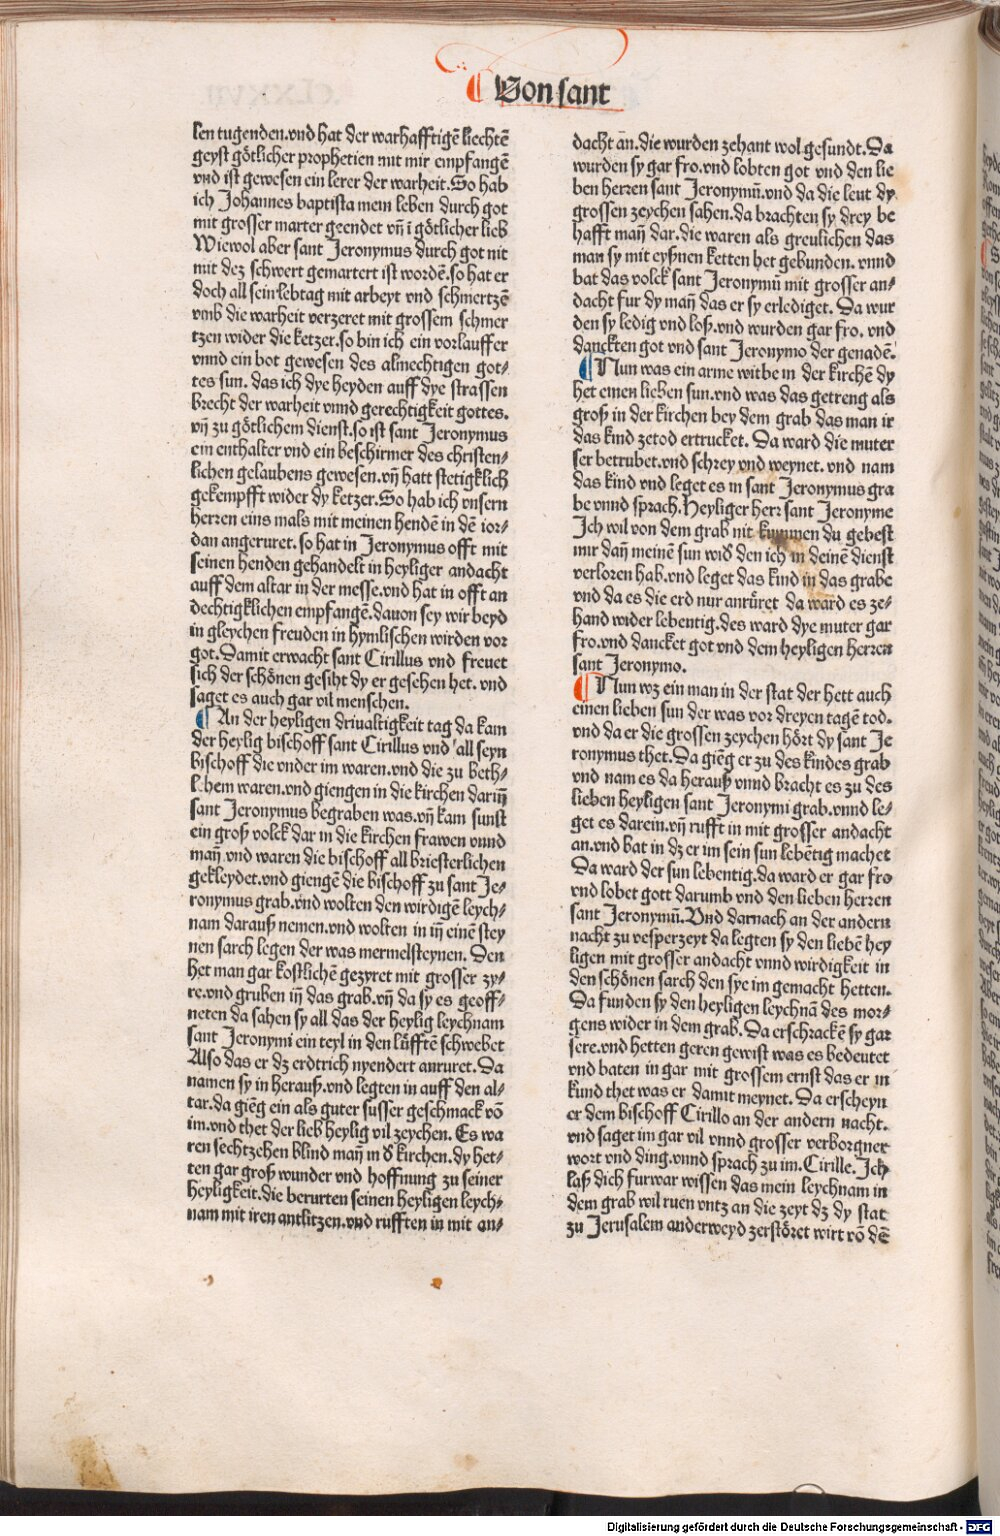 Von sant
len tugenden.vnd hat der warhafftigē liechtē
geyst götlicher prophetien mit mir empfangē
vnd ist gewesen ein lerer der warheit.So hab
ich Johannes baptista mein leben durch got
mit grosser marter geendet vñ ī götlicher lieb
Wiewol aber sant Jeronymus durch got nit
mit dez schwert gemartert ist wordē.so hat er
doch all sein lebtag mit arbeyt vnd schmertzē
vmb die warheit verzeret mit grossem schmer
tzen wider die ketzer.so bin ich ein vorlauffer
vnnd ein bot gewesen des almechtigen got⸗
tes sun. das ich dye heyden auff dye strassen
brecht der warheit vnnd gerechtigkeit gottes.
vñ zu götlichem dienst.so ist sant Jeronymus
ein enthalter vnd ein beschirmer des christen⸗
lichen gelaubens gewesen.vñ hatt stetigklich
gekempfft wider dy ketzer.So hab ich vnsern
herren eins mals mit meinen hendē in dē ior⸗
dan angeruret.so hat in Jeronymus offt mit
seinen henden gehandelt in heyliger andacht
auff dem altar in der messe.vnd hat in offt an
dechtigklichen empfangē.dauon sey wir beyd
in gleychen freuden in hymlischen wirden vor
got.Damit erwacht sant Cirillus vnd freuet
sich der schönen gesiht dy er gesehen het. vnd
saget es auch gar vil menschen.
An der heyligen driualtigkeit tag da kam
der heylig bischoff sant Cirillus vnd all seyn
bischoff die vnder im waren.vnd die zu beth⸗
lehem waren.vnd giengen in die kirchen dariñ
sant Jeronymus begraben was.vñ kam sunst
ein groß volck dar in die kirchen frawen vnnd
mañ.vnd waren die bischoff all briesterlichen
gekleydet.vnd giengē die bischoff zu sant Je⸗
ronymus grab.vnd wolten den wirdigē leych⸗
nam darauß nemen.vnd wolten in iñ einē stey
nen sarch legen der was mermelsteynen. Den
het man gar kostlichē gezyret mit grosser zy⸗
re.vnd gruben iñ das grab.vñ da sy es geoff⸗
neten da sahen sy all das der heylig leychnam
sant Jeronymi ein teyl in den lüfftē schwebet
Also das er dz erdtrich nyendert anruret. Da
namen sy in herauß.vnd legten in auff den al⸗
tar.da giēg ein als guter susser geschmack vō
im.vnd thet der lieb heylig vil zeychen. Es wa
ren sechtzehen blind mañ in d̄ kirchen.dy het⸗
ten gar groß wunder vnd hoffnung zu seiner
heyligkeit.die berurten seinen heyligen leych⸗
nam mit iren antlitzen.vnd rufften in mit an⸗
dacht an.die wurden zehant wol gesundt.Da
wurden sy gar fro.vnd lobten got vnd den lie
ben herzen sant Jeronymū.vnd da die leut dy
grossen zeychen sahen.da brachten sy drey be
hafft mañ dar.die waren als greulichen das
man sy mit eyßnen ketten het gebunden. vnnd
bat das volck sant Jeronymū mit grosser an⸗
dacht fur dy mañ das er sy erlediget. Da wur
den sy ledig vnd loß.vnd wurden gar fro. vnd
danckten got vnd sant Jeronymo der genadē.
Nun was ein arme witbe in der kirchē dy
het einen lieben sun.vnd was das getreng als
groß in der kirchen bey dem grab das man ir
das kind zetod ertrucket. Da ward die muter
ser betrubet.vnd schrey vnd weynet. vnd nam
das kind vnd leget es in sant Jeronymus gra
be vnnd sprach.Heyliger herr sant Jeronyme
Ich wil von dem grab nit kummen du gebest
mir dañ meinē sun wid̄ den ich in deinē dienst
verloren hab.vnd leget das kind in das grabe
vnd da es die erd nur anrüret da ward es ze⸗
hand wider lebentig.des ward dye muter gar
fro.vnd dancket got vnd dem heyligen herren
sant Jeronymo.
Nun wz ein man in der stat der hett auch
einen lieben sun der was vor dreyen tagē tod.
vnd da er die grossen zeychen hört dy sant Je
ronymus thet. Da giēg er zu des kindes grab
vnd nam es da herauß vnnd bracht es zu des
lieben heyligen sant Jeronymi grab.vnnd le⸗
get es darein.vñ rufft in mit grosser andacht
an.vnd bat in dz er im sein sun lebētig machet
Da ward der sun lebentig.da ward er gar fro
vnd lobet gott darumb vnd den lieben herren
sant Jeronymū.Vnd darnach an der andern
nacht zu vesperzeyt da legten sy den liebē hey
ligen mit grosser andacht vnnd wirdigkeit in
den schönen sarch den sye im gemacht hetten.
Da funden sy den heyligen leychnā des mor⸗
gens wider in dem grab. Da erschrackē sy gar
sere.vnd hetten geren gewist was es bedeutet
vnd baten in gar mit grossem ernst das er in
kund thet was er damit meynet. Da erscheyn
er dem bischoff Cirillo an der andern nacht.
vnd saget im gar vil vnnd grosser verborgner
wort vnd ding.vnnd sprach zu im.Cirille.Ich
laß dich furwar wissen das mein leychnam in
dem grab wil ruen vntz an die zeyt dz dy stat
zu Jerusalem anderweyd zerstöret wirt vō dē
Digitalisierung gefördert durch die Deutsche Forschungsgemeinschaft - DFG